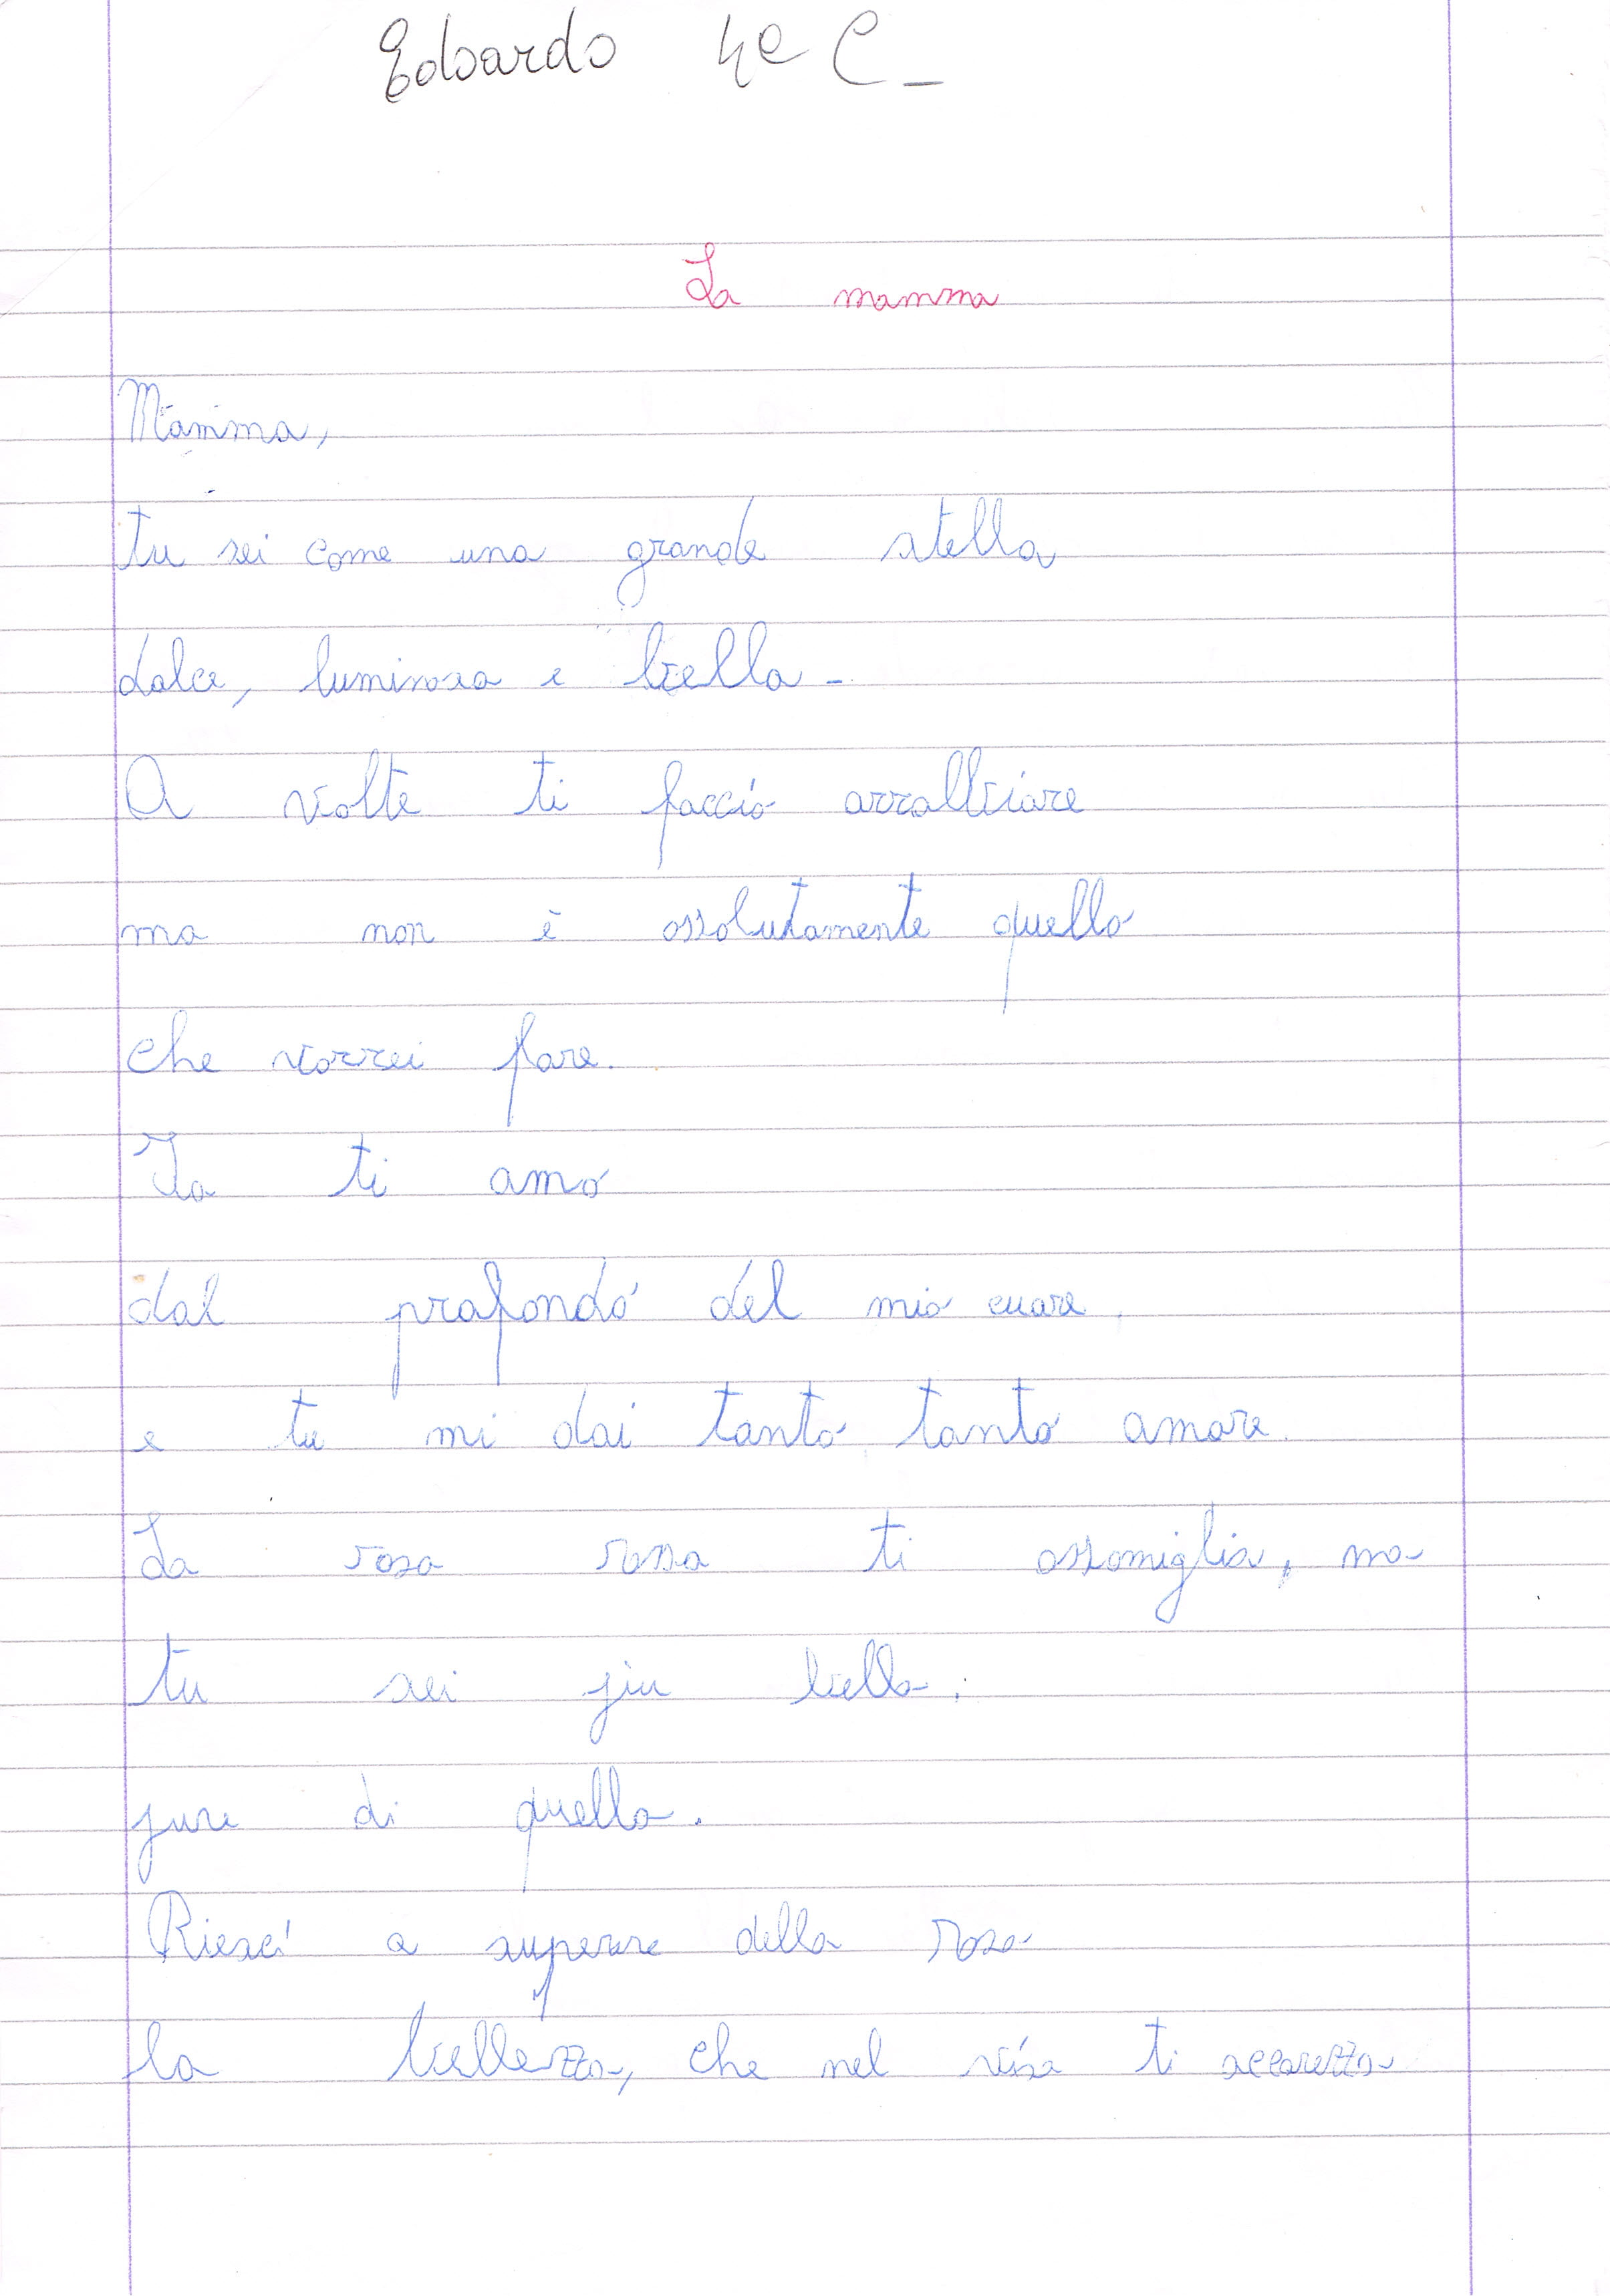 Edoardo 4e C_
La mamma
Mamma,
tu sei come una grande stella
dolce, luminosa e bella -
A volte ti faccio arrabbiare
ma non è assolutamente quello
che vorrei fare.
Io ti amo
dal profondo del mio cuore,
e tu mi dai tanto tanto amore.
La rosa rossa ti assomiglia, ma
tu sei piu bella.
pure di quella.
Riesci a superare della rosa
la bellezza, che nel viso ti accarezza